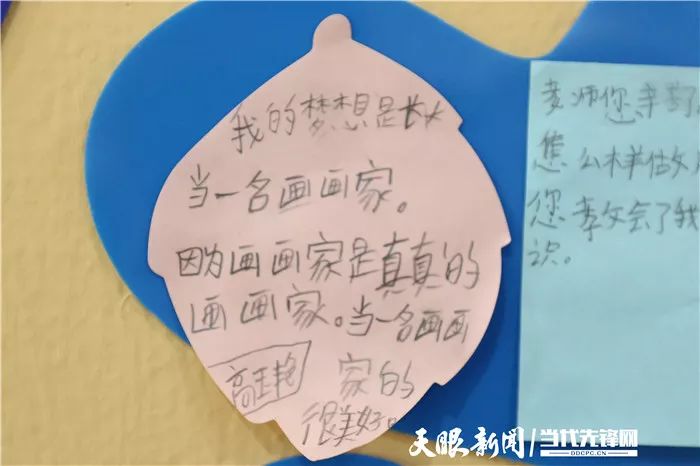 我的梦想是长大
当一名画画家。
因为画画家是真真的
画画家。当一名画画
家的
很美好。
老师您辛
您
您 会了我
识。
天眼新闻 当代先锋网
DDCPC.CN